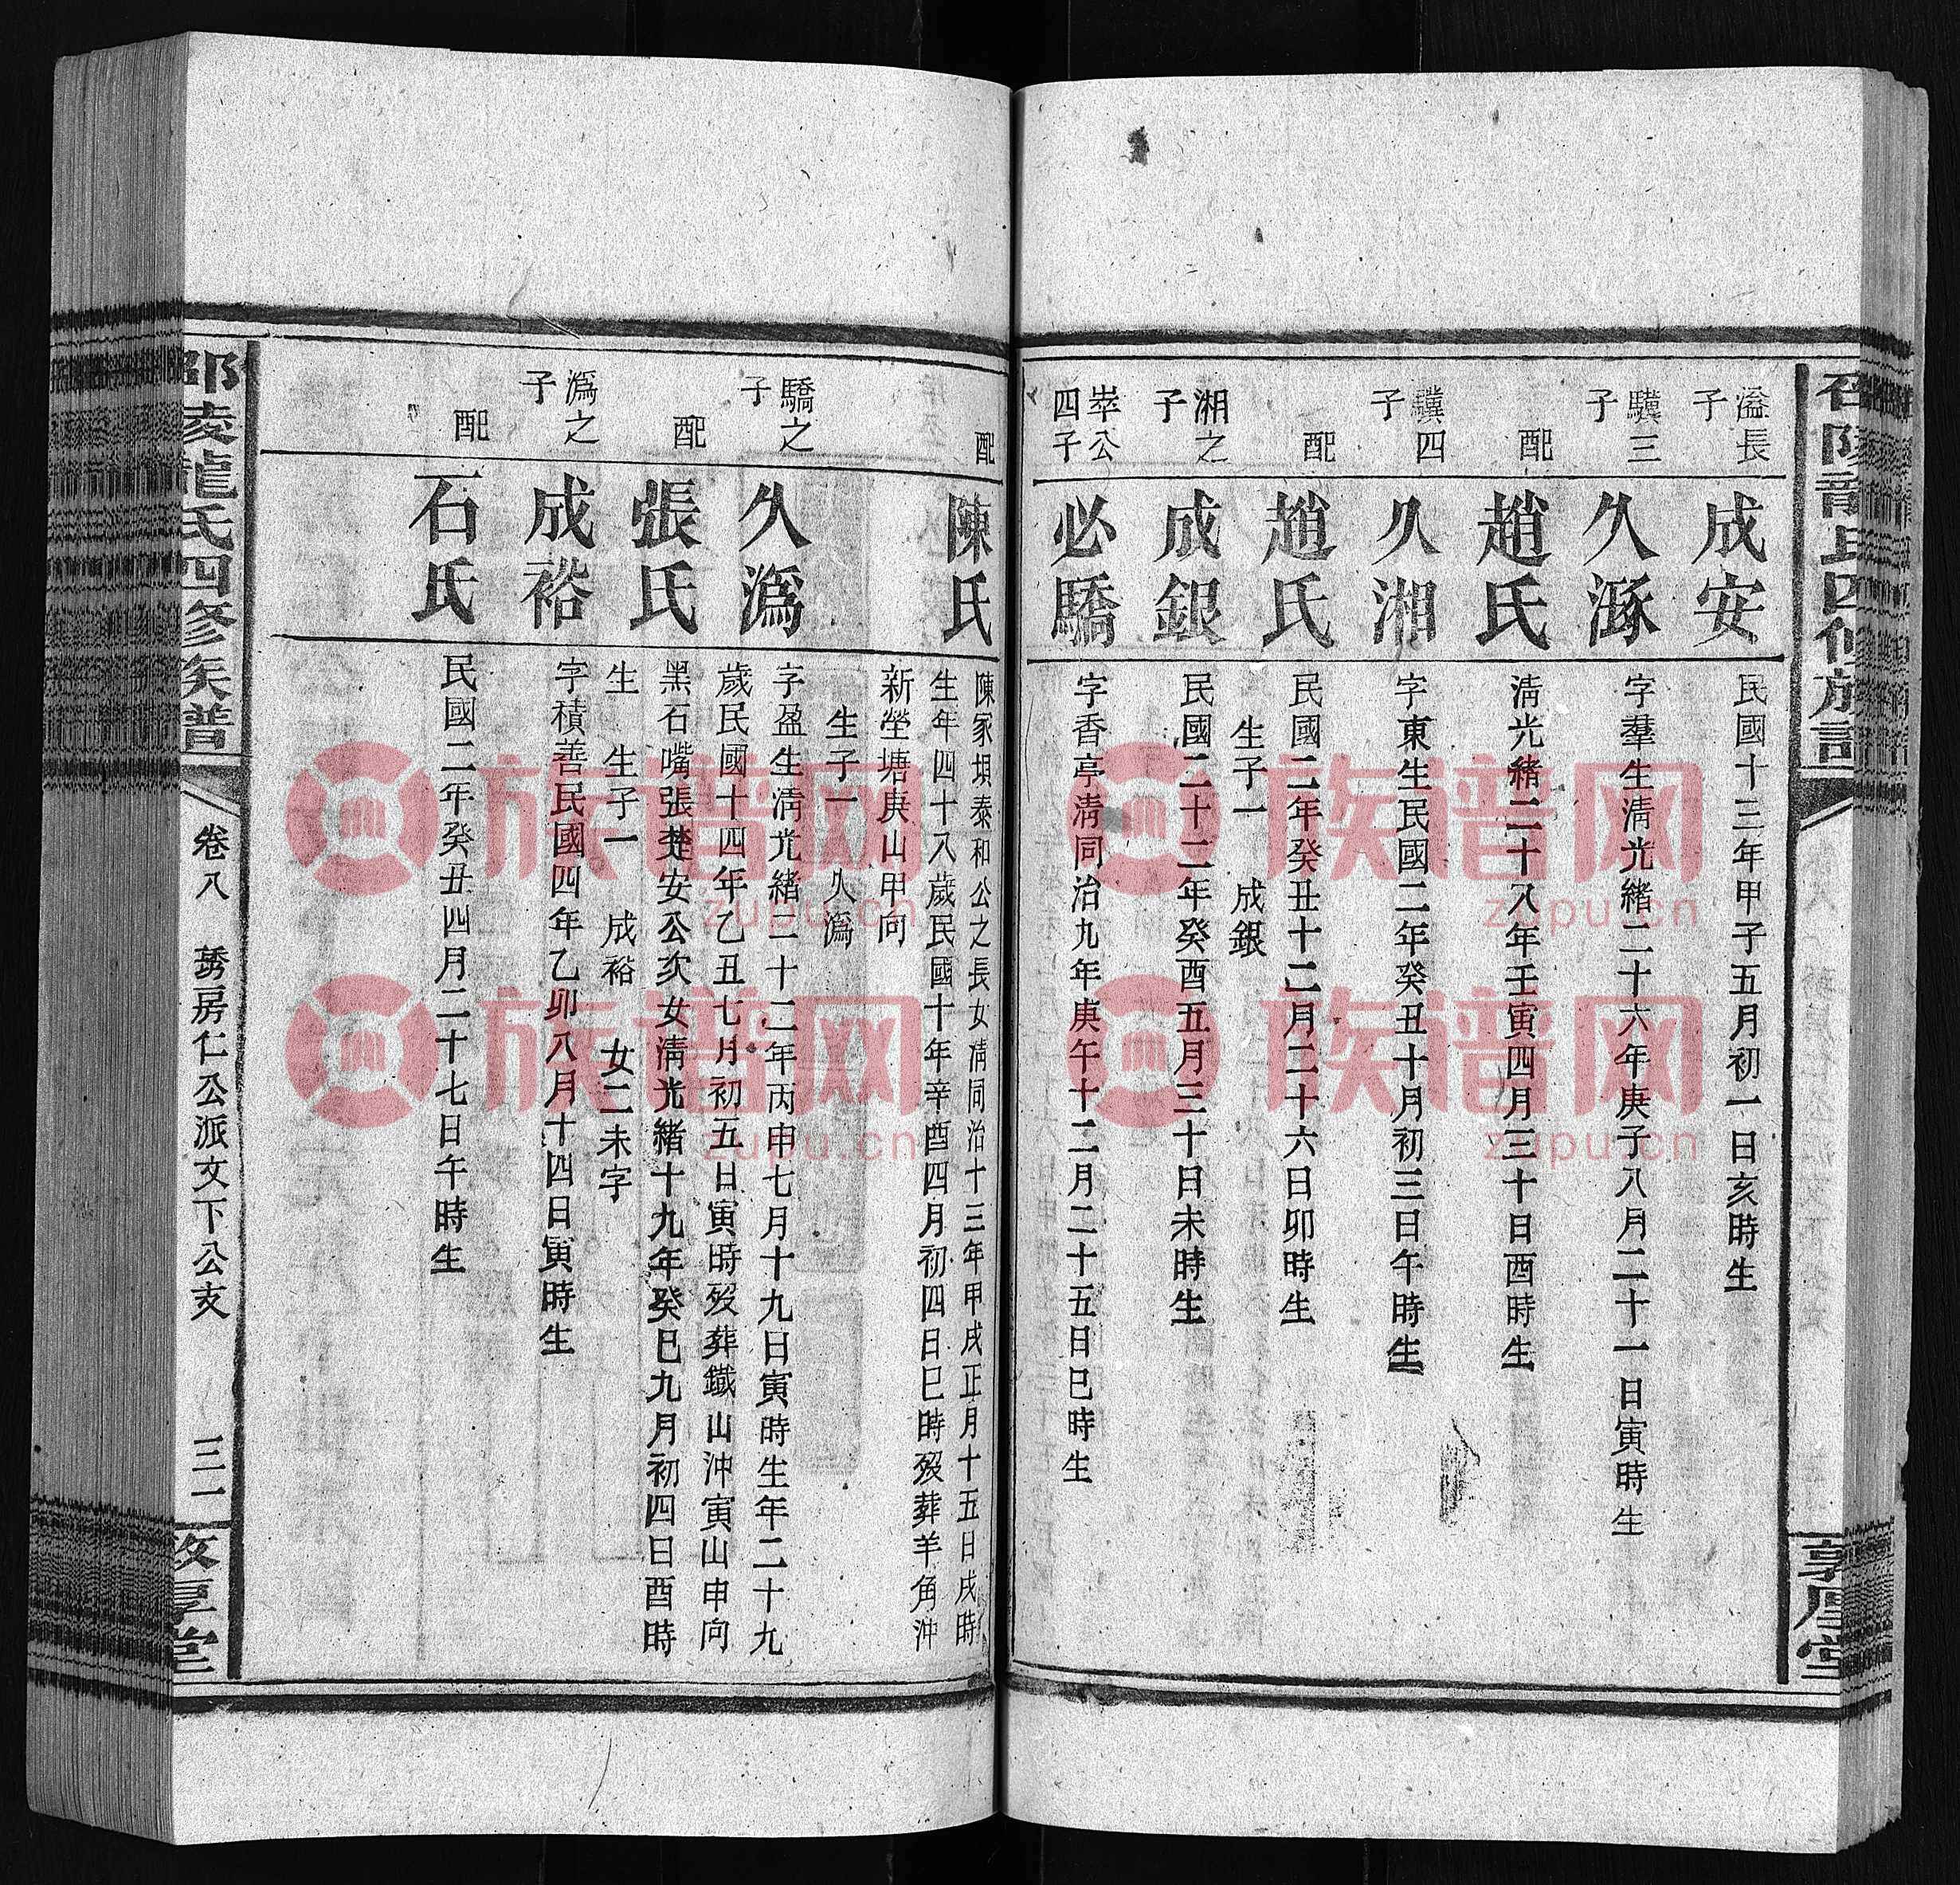 溢長子
成安
民國十三年甲子五月初一日亥時生
驥三子
久涿
字羣生淸光緒二十六年庚子八月二十一日寅時生
配
趙氏
淸光緒二十八年壬寅四月三十日酉時生
驥四子
久湘
字東生民國二年癸丑十月初三日午時生
配
趙氏
民國二年癸丑十二月二十六日卯時生
生子一 成銀
湘之子
成銀
民國二十二年癸酉五月三十日未時生
崒公四子
必驕
字香亭淸同治九年庚午十二月二十五日巳時生
配
陳氏
陳家垻泰和公之長女淸同治十三年甲戌正月十五日戌時
生年四十八歲民國十年辛酉四月初四日巳時歿葬羊角沖
新塋塘庚山甲向
生子一 久潙
驕之子
久潙
字盈生淸光緒二十二年丙申七月十九日寅時生年二十九
歲民國十四年乙丑七月初五日寅時歿葬鐵山沖寅山申向
配
張氏
黑石嘴張楚安公次女淸光緒十九年癸巳九月初四日酉時
生 生子一 成裕 女二未字
潙之子
成裕
字積善民國四年乙卯八月十四日寅時生
配
石氏
民國二年癸丑四月二十七日午時生
邵陵龍氏四修族譜
卷八 誘房仁公派文下公支
三一
敦厚堂
族谱网
zupu.cn
族谱网
zupu.cn
族谱网
zupu.cn
族谱网
zupu.cn